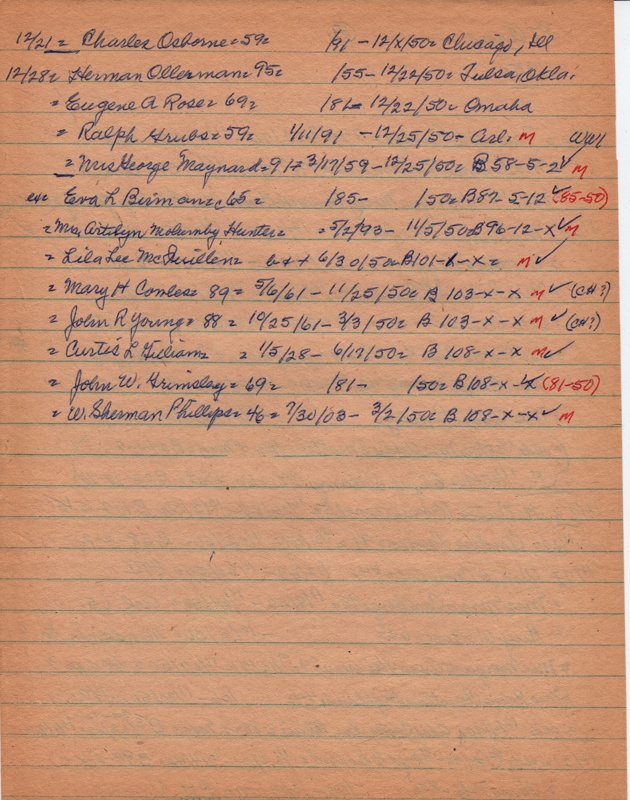 12/21 = Charles Osborne = 59 = /91 - 12/x/50 = Chicago, Ill
12/28 = Herman Ollerman = 95 = /55 - 12/22/50 = Tulsa, Okla.
= Eugene A Rose = 69 = /81 = 12/22/50 = Omaha
= Ralph Grubs = 59 = 1/11/91 - 12/25/50 - Arl = M WWI
= Mrs George Maynard = 91 = 3/17/59 - 12/25/50 = B 58-5-2 ✓ M
Eva L Birman = 65 = /85- /50 = B87-5-12 ✓ (85-50)
= Mrs Hunter = = 5/2/93 - 11/5/50 = B96-12-x ✓ M
= Lila Lee McQuillen = b++ 6/30/50 = B101-x-x = M ✓
= Mary H Combs = 89 = 5/6/61 - 11/25/50 = B 103-x-x M ✓ (CH?)
= John R Young = 88 = 10/25/61 - 3/3/50 = B 103-x-x M ✓ (CH?)
= Curtis L Gilliam = = 1/5/28 - 6/17/50 = B 108-x-x M ✓
= John W. Grimsley = 69 = /81- /50 = B108-x-x ✓ (81-50)
= W. Sherman Phillips = 46 = 7/30/03 - 3/2/50 = B 108-x-x ✓ M